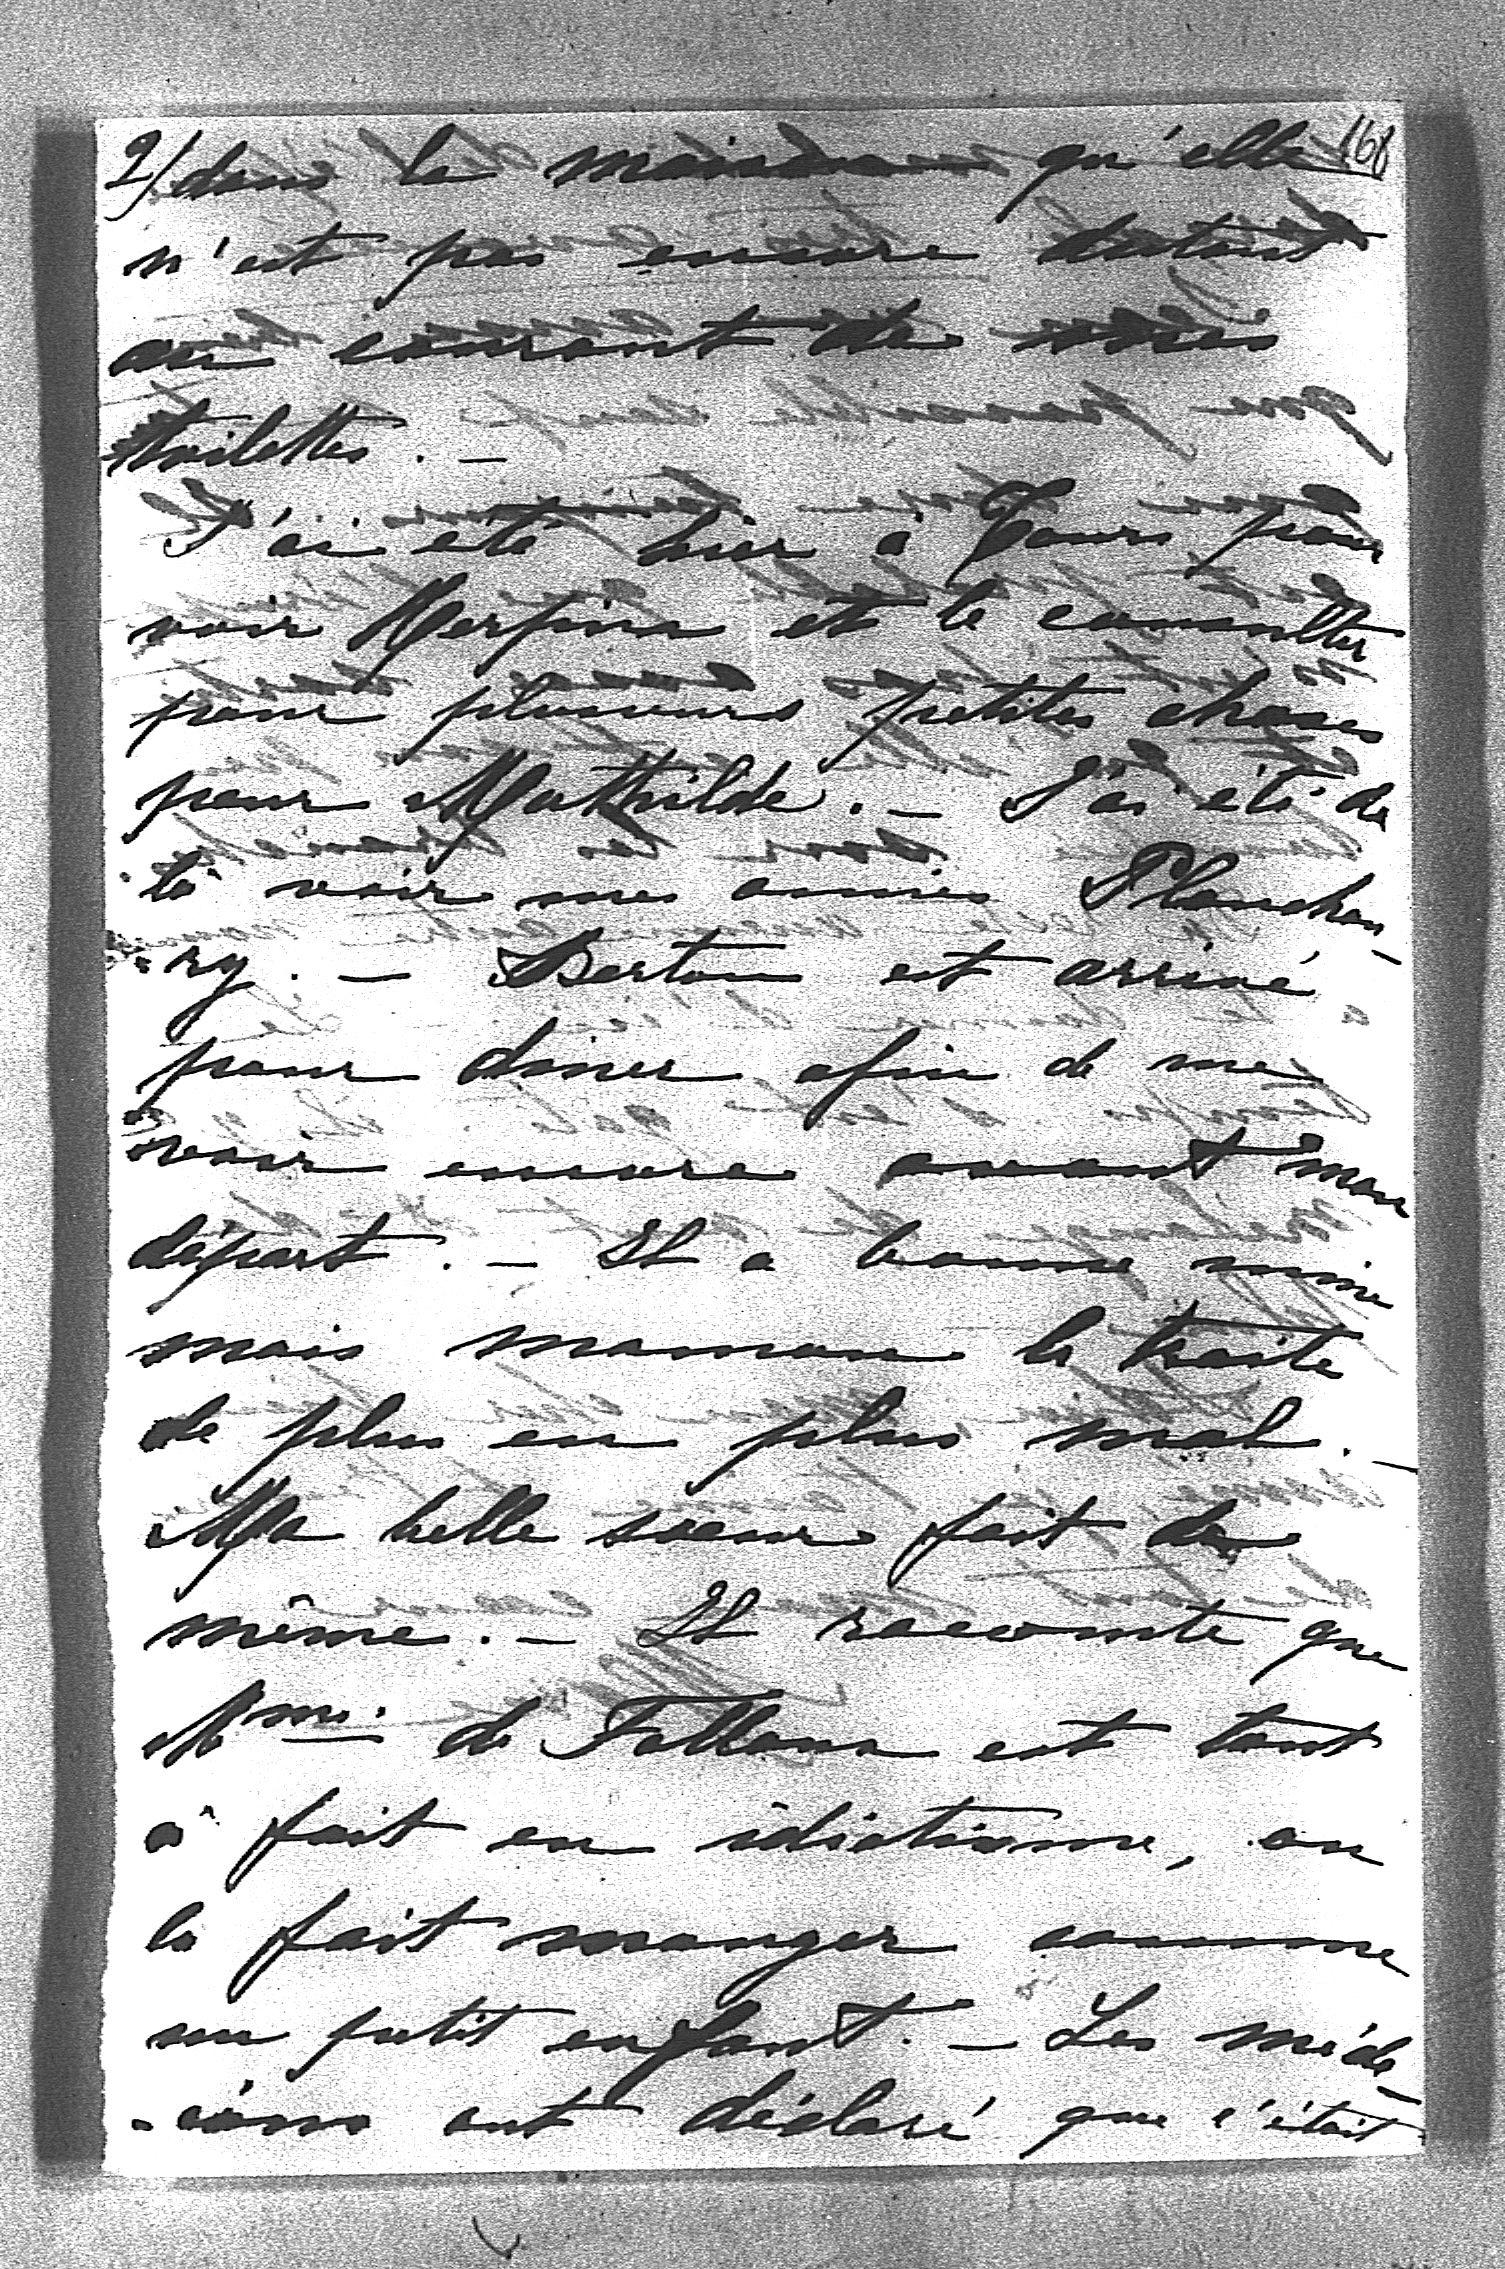 2/ dans la maison qu'elle 168
n'est pas encore dutout
au courant de mes
toilettes. –
J'ai été hier à Tours pour
voir et le consulter
pour plusieurs petites choses
pour Mathilde. – J'ai été de
là voir mes amies Planchen-
-ry. – Berton est arrivé
pour diner afin de me
voir encore avant mon
départ. – Il a bonne mine
mais maman le traite
de plus en plus mal. –
Ma belle soeur fait de
même. – Il raconte que
Mme. de est tout
à fait en idiotisme, on
la fait manger comme
un petit enfant. – Les méde-
-cins ont déclaré que c'était